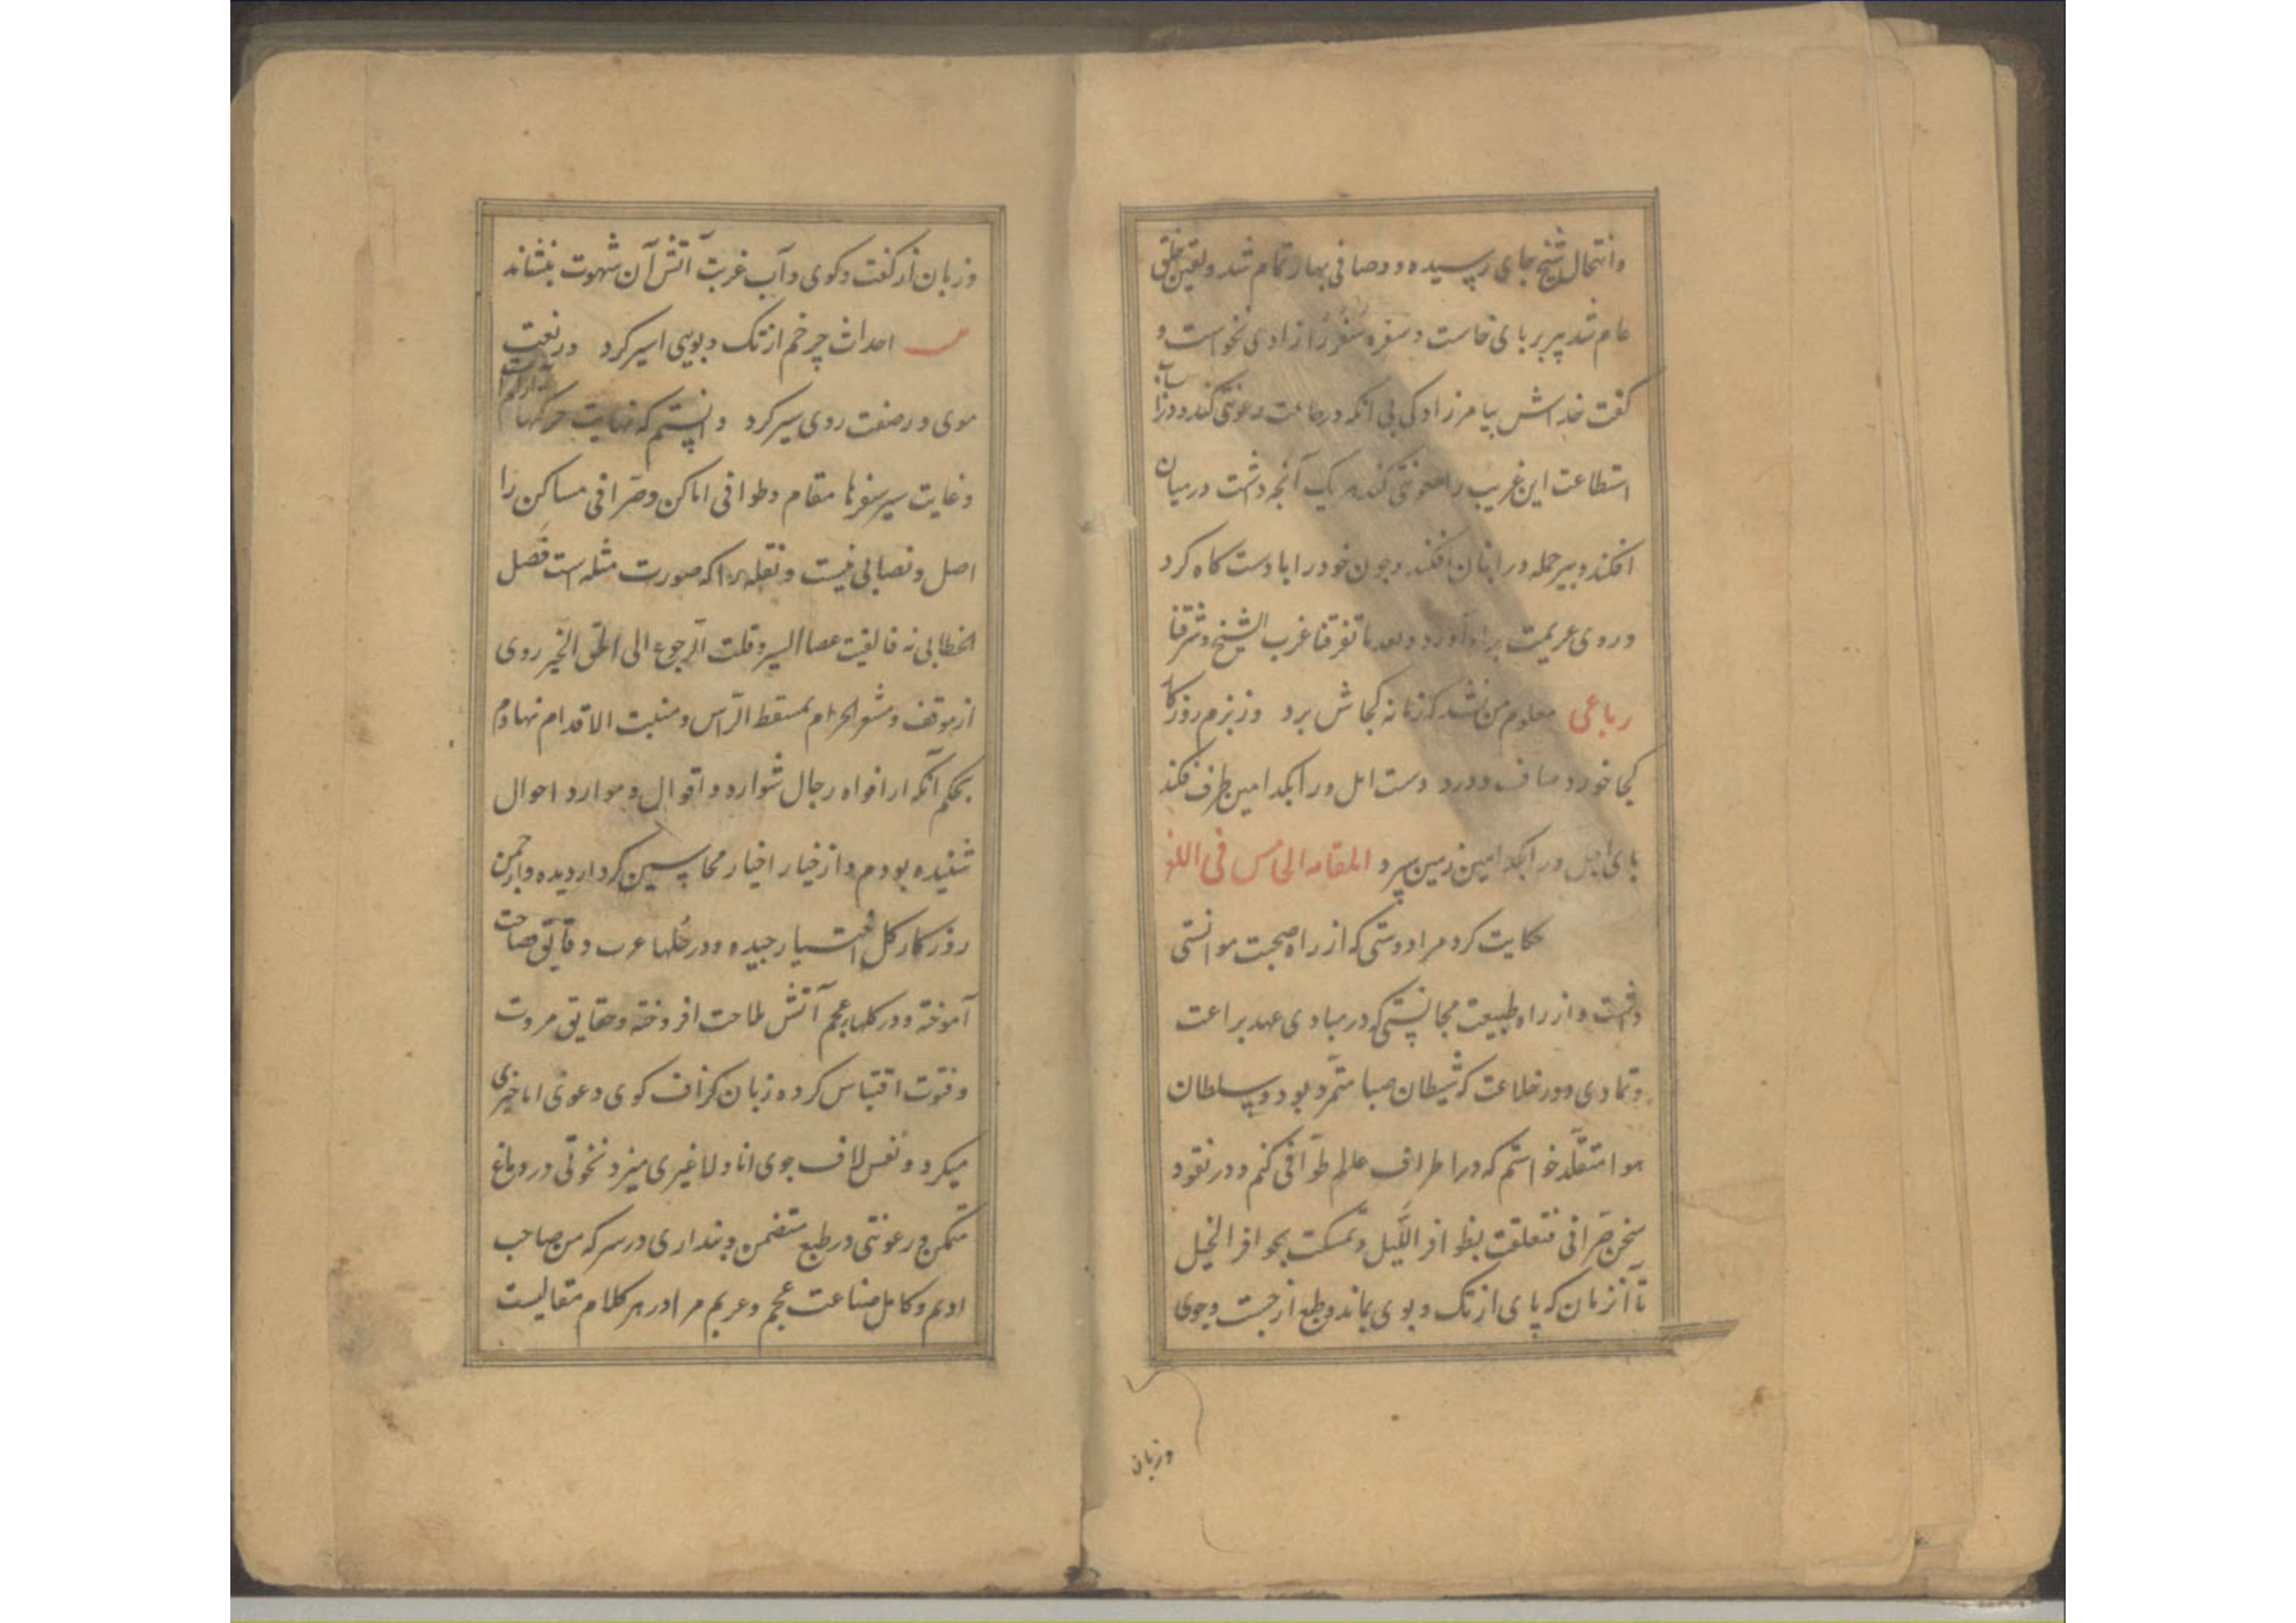 وانتحال شیخ بجای رسیده و وصافی بهار تمام شد و یقین خلق
عام شد پیر بر پای خاست و سفره سفر را زادی نخواست و
گفت خداش بیامرزاد کی بی آنکه در جاعت رعونتی کند و در باب
استطاعت این غریب را معونتی کند هر یک آنچه داشت در میان
افکند و پیر جمله در انبان افکند و چون خود را با دست کاه کرد
و روی عزیمت براه آورد و بعد ما تفرقنا غرب الشیخ و شرقنا
رباعی معلوم من نشد که زمانه کجاش برد وز بزم روزکار
کجا خورد صاف و درد دست امل ورا بکدامین طرف فکند
پای اجل ورا بکدامین زمین سپرد المقامه الخامس فی اللغز
حکایت کرد مرا دوستی که از راه صحبت موانستی
داشت و از راه طبیعت مجانستی که در مبادی عهد براعت
و تمادی دور خلاعت که شیطان صبا متمرد بود و سلطان
هوا متقلد خواستم که در اطراف عالم طوافی کنم و در نقود
سخن صرافی فتعلقت بظوافر اللیل و تمسکت بحوافر الخیل
تا آنزمان که پای از تک و پوی بماند و طبع از جست و جوی
وزبان
و زبان از کفت و کوی و آب غربت آتش آن شهوت بنشاند
احداث چرخم از تک و پویی اسیر کرد در نعت
موی و در صفت روی سیر کرد دانستم که نهایت حرکتها آرام است
و غایت سیر سفرها مقام و طوافی اماکن و صرافی مساکن را
اصل و نصابی نیست و نقله را که صورت مثله است فصل
الخطابی نه فالقیت عصا السیر و قلت الرجوع الی الحق الخیر روی
از موقف و مشعر الحرام بمسقط الراس و منبت الاقدام نهادم
بحکم آنکه از افواه رجال شوارد اقوال و موارد احوال
شنیده بودم و از خیار اخیار محاسن کردار دیده و از چمن
روزکار کل اختیار چیده و در حلها عرب دقایق فصاحت
آموخته و در کلها عجم آتش ملاحت افروخته و حقایق مروت
و فتوت اقتباس کرده زبان کزاف کوی دعوی انا خیری
میکرد و نفس لاف جوی انا و لا غیری میزد نخوتی در دماغ
متمکن و رعونتی در طبع متضمن و پنداری در سر که من صاحب
ادبم و کامل صناعت عجم و عربم مرا در هر کلام مقالیست